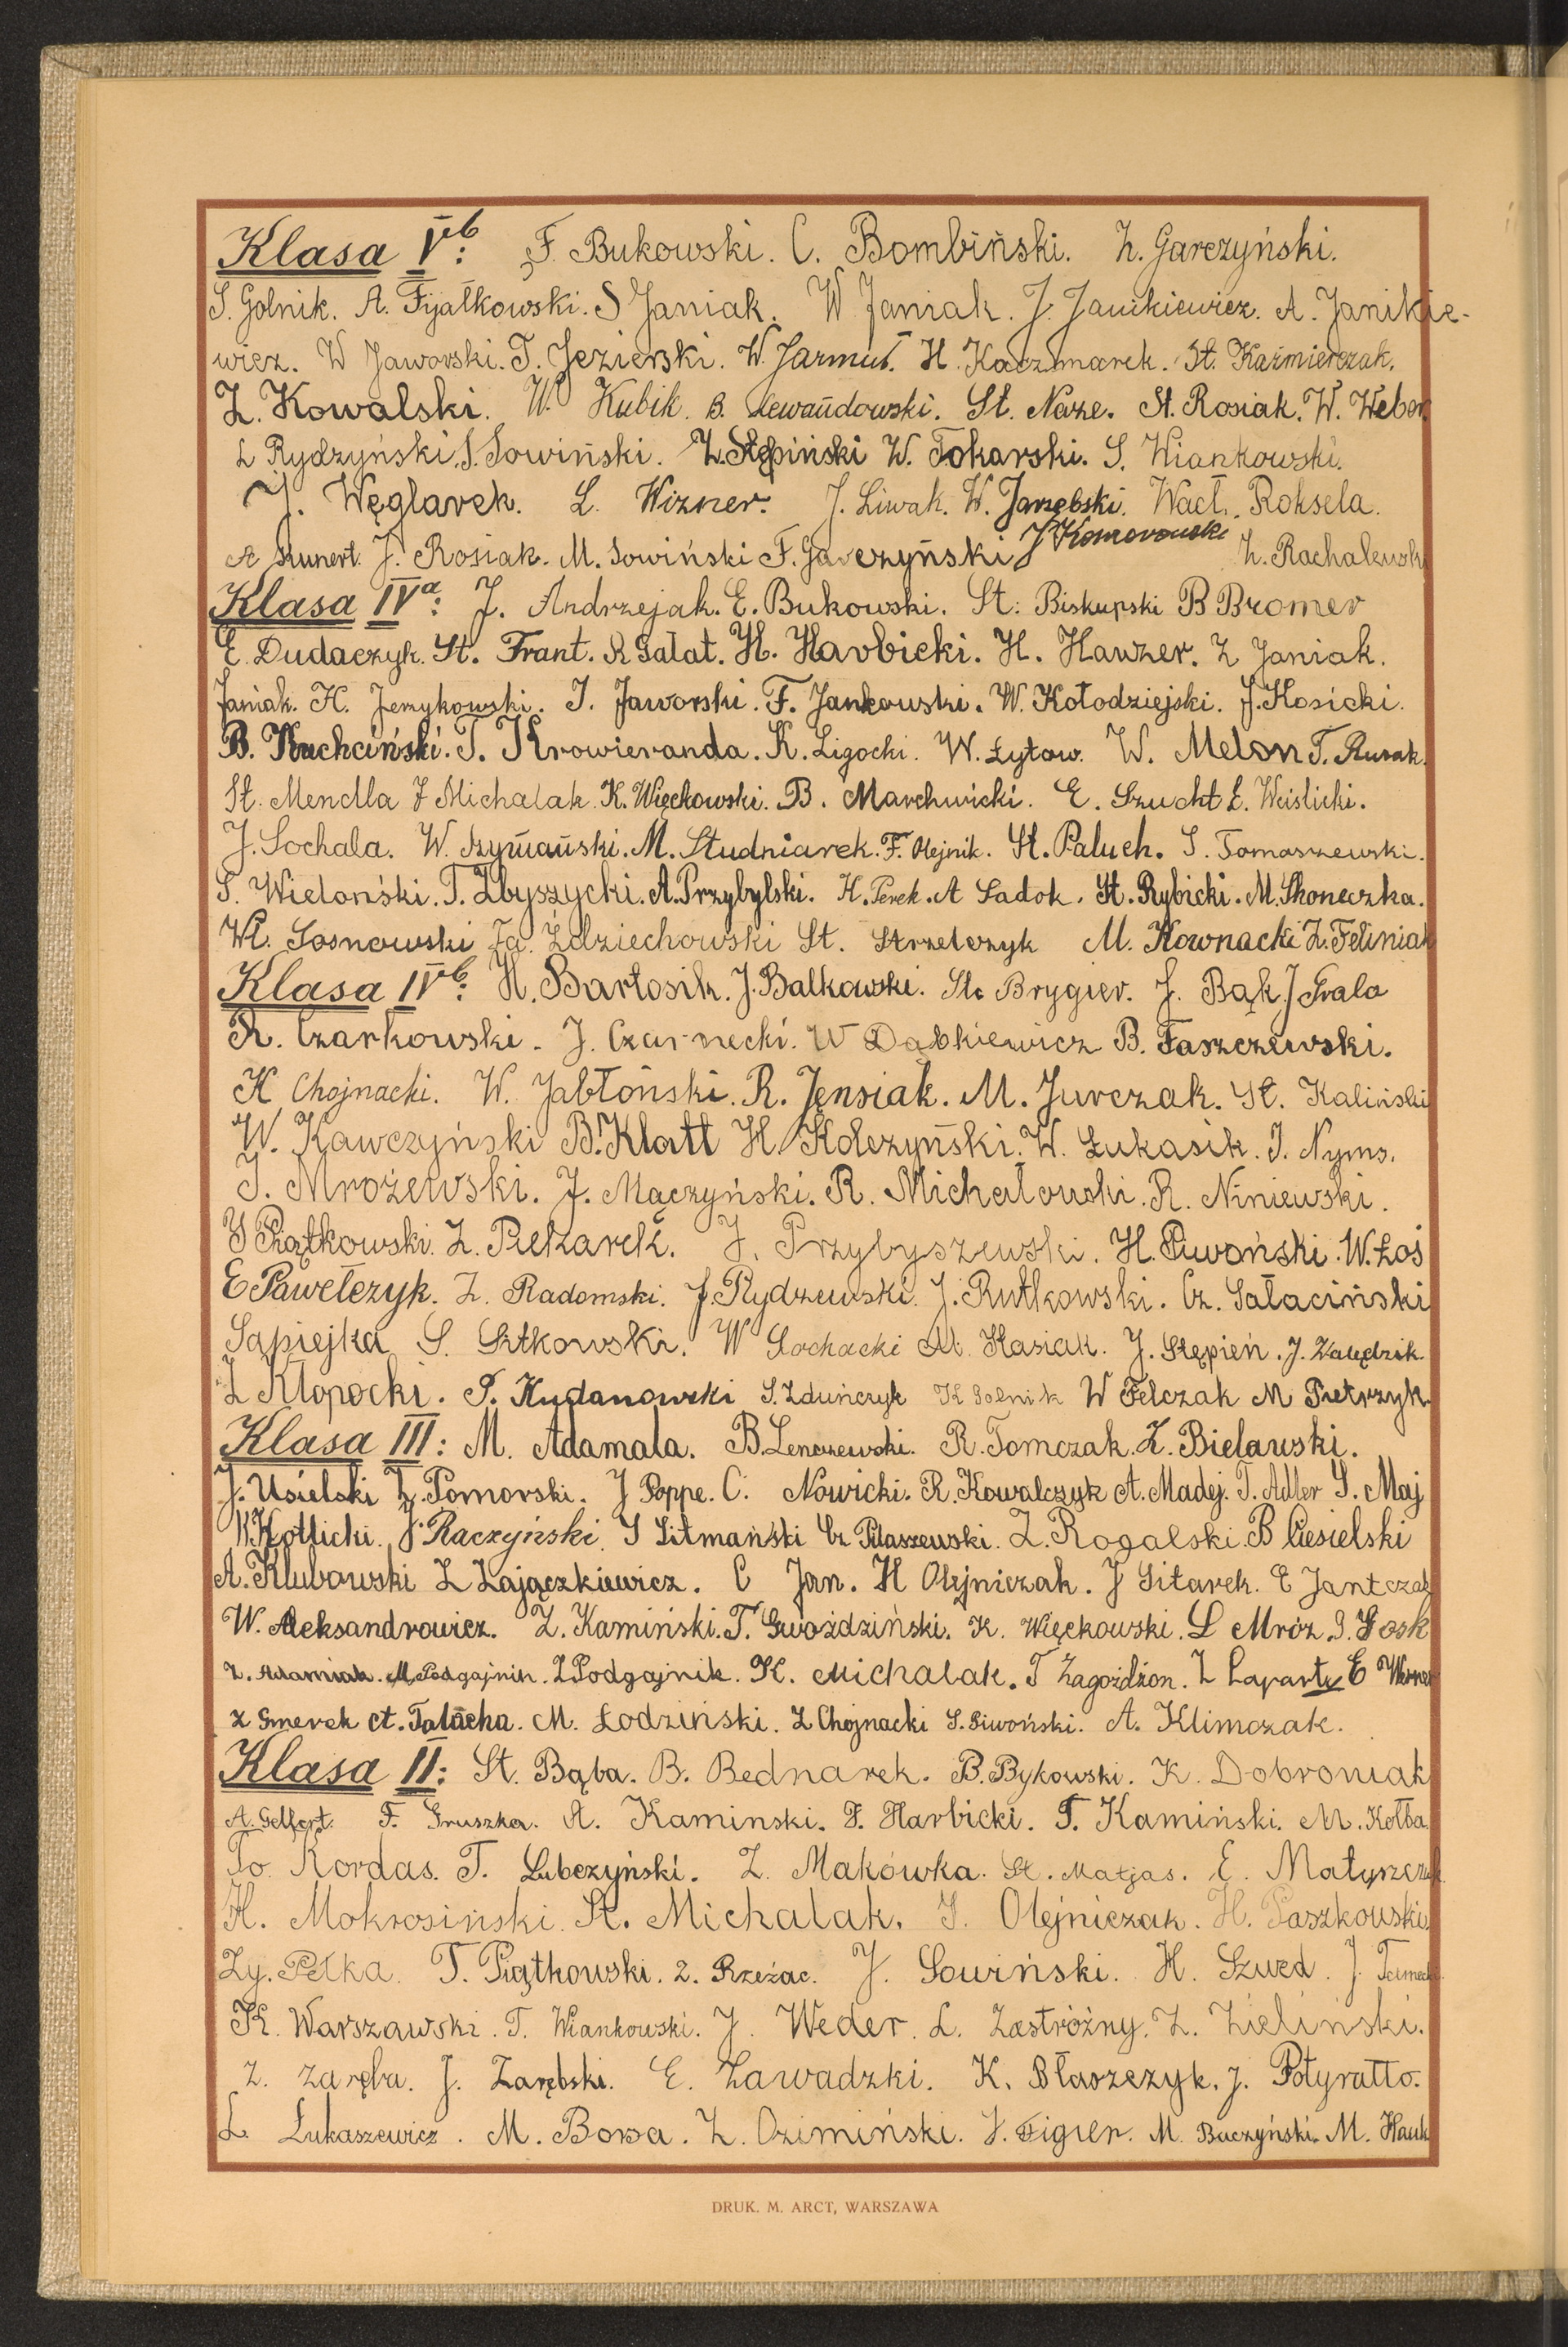 Klasa Vb: F. Bukowski. C. Bombiński. Z. Garczyński.
S. Golnik. A. Fijałkowski. S Janiak. W Janiak. J. Janikiewicz. A. Janikie-
wicz. W Jaworski. T. Jezierski. W. Jarmuż. H. Kaczmarek. St. Kaźmierczak.
Z. Kowalski. W. Kubik. B. Lewandowski. St. Naze. St. Rosiak. W. Weber
L Rydzyński. S. Sowiński. Z. Stępiński W. Tokarski. S. Wiankowski.
J. Węglarek. L. Wizner. J. Liwak. W. Jarzębski. Wacł. Roksela.
A Kunert. J. Rosiak. M. Sowiński F. Garczyński J Komorowski Z. Rachalewski
Klasa IVa: J. Andrzejak. E. Bukowski. St. Biskupski B Bromer
E. Dudaczyk. St. Frant. R Gałat. H. Harbicki. H. Hawzer. Z Janiak.
Janiak. H. Jerzykowski. J. Jaworski. F. Jankowski. W. Kołodziejski. J. Kosicki.
B. Kuchciński. T. Krowieranda. K. Ligocki. W. Łytow. W. Melon T. Rusak.
St. Mendla J Michalak K. Więckowski. B. Marchwicki. E. Szucht E. Weislicki.
J. Sochala. W. Szymański. M. Studniarek. F. Olejnik. St. Paluch. S. Tomaszewski.
S. Wieloński. T. Zbyszycki. A. Przybylski. H. Perek. A Sadok. St. Rybicki. M. Skoneczka.
Wł. Sosnowski Zdziechowski St. Strzelczyk M. Kownacki Z. Feliniak
Klasa IVb: H. Bartosik. J. Balkowski. St. Brygier. J. Bąk J Grala
R. Czarkowski. J. Czarnecki. W Dąbkiewicz B. Faszczewski.
K Chojnacki. W. Jabłoński. R. Jęnsiak. M. Jurczak. St. Kaliński
W. Kawczyński B. Klatt H Kolczyński. W. Łukasik. J. Nyms.
J. Mrożewski. J. Mączyński. R. Michałowski. R. Niniewski.
S Piątkowski. Z. Piekarek. J. Przybyszewski. H. Piwoński. W. Łoś
E Pawełczyk. Z. Radomski. J. Rydzewski. J. Rutkowski. Cz. Sałaciński
Sapiejka S. Sitkowski. W Sochacki M. Stasiak. J. Stępień. J. Zalędzik.
Z Kłopocki. P. Kudanowski S. Zduńczyk K Solnik W Felczak M Pietrzyk
Klasa III: M. Adamala. B. Lenczewski. R. Tomczak. Z. Bielawski.
J. Usielski Z. Pomorski. J Poppe. C. Nowicki. R. Kowalczyk A. Madej. T. Adler S. Maj
K. Kotlicki. J. Raczyński. S Litmański Cz Pilaszewski. Z. Rogalski. B Ciesielski
A. Klubowski Z Zajączkiewicz. C Jan. H Olejniczak. J Sitarek. E Jantczak
W. Aleksandrowicz. Z. Kamiński. T. Gwoździński. K. Więckowski. L Mróz. J. Gosk
Z. Adamiak. M. Podgajnik. Z Podgajnik. K. Michalak. T Zagożdżon. Z Laparty E Werner
Z Smerek Ct. Tatacha. M. Łodziński. Z Chojnacki S. Siwoński. A. Klimczak.
Klasa II: St. Bąba. B. Bednarek. B. Bykowski. K. Dobroniak
A. Gelfert. F. Gruszka. A. Kaminski. F. Harbicki. T. Kamiński. M. Kołba.
To. Kordas. T. Lubczyński. Z. Makówka. St. Matjas. E. Matyszczak.
H. Mokrosiński. St. Michalak. J. Olejniczak. H. Paszkowski.
Zy. Pełka. T. Piątkowski. Z. Rzeżac. J. Sowiński. H. Szwed. J.
K. Warszawski. T. Wiankowski. J. Weder. L. Zastróżny. Z. Zieliński.
Z. Zaręba. J. Zarębski. E. Zawadzki. K. Błaszczyk. J. Potyratto.
L. Łukaszewicz. M. Bowa. Z. Oziminski. J. Figier. M. Buczyński. M. Hauk
DRUK. M. ARCT, WARSZAWA